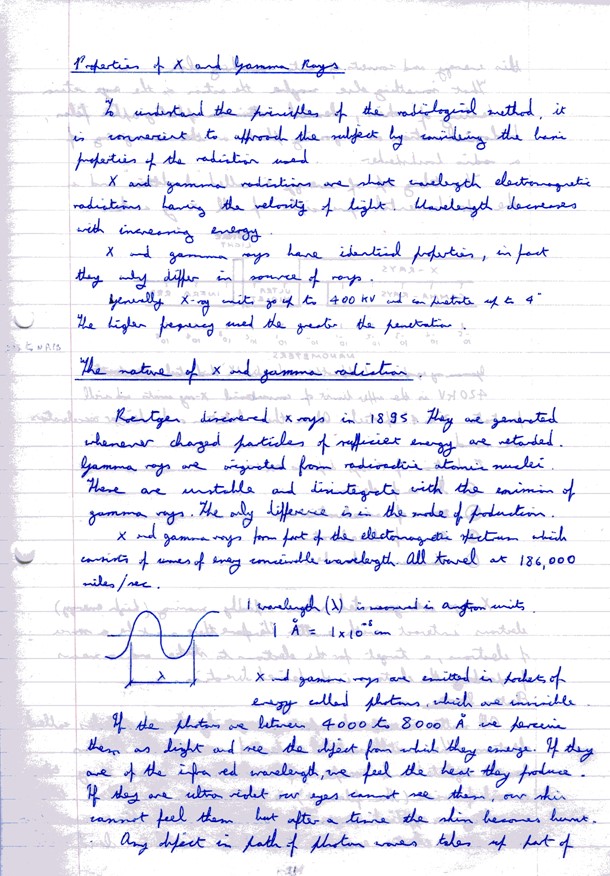 Properties of X and Gamma Rays
To understand the principles of the radiological method, it
is convenient to approach the subject by considering the basic
properties of the radiation used
X and gamma radiations are short wavelength electromagnetic
radiations having the velocity of light. Wavelength decreases
with increasing energy.
X and gamma rays have identical properties, in fact
they only differ in source of rays.
Generally X-ray units go up to 400 KV and can penetrate up to 4"
The higher frequency used the greater the penetration.
The nature of X and gamma radiation.
Roentgen discovered x rays in 1895 They are generated
whenever charged particles of sufficient energy are retarded.
Gamma rays are originated from radioactive atomic nuclei.
These are unstable and disintegrate with the emission of
gamma rays. The only difference is in the mode of production.
X and gamma rays form part of the electromagnetic spectrum which
consists of waves of every conceivable wavelength. All travel at 186,000
miles/sec.
1 wavelength (λ) is measured in angtrom units.
1 Å = 1x10⁻⁸ cm
λ
X and gamma rays are emitted in packets of
energy called photons, which are invisible.
If the photons are between 4000 to 8000 Å we perceive
them as light and see the object from which they emerge. If they
are of the infra red wavelength, we feel the heat they produce.
If they are ultra violet our eyes cannot see them, our skin
cannot feel them but after a time the skin becomes burnt.
Any object in path of photon waves takes up part of